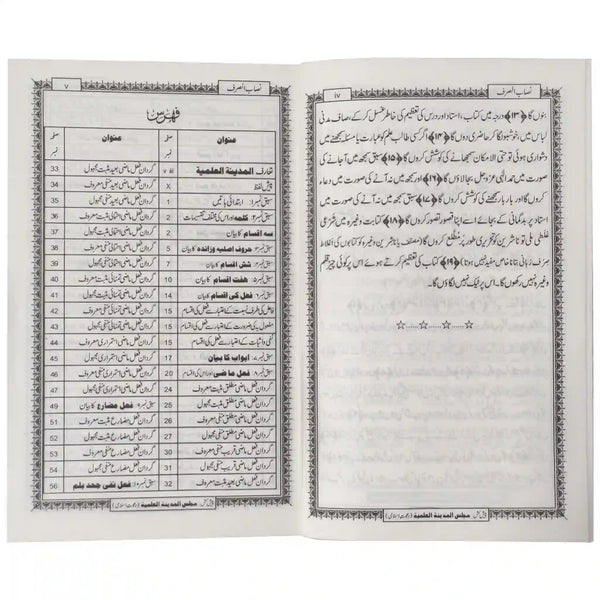 نصاب الصرف iv
بنوں گا ﴿۱۳﴾ درجہ میں کتاب، استاد اور درس کی تعظیم کی خاطر غسل کرکے، صاف مدنی
لباس میں، خوشبو لگا کر حاضری دوں گا ﴿۱۴﴾ اگر کسی طالب علم کو عبارت یا مسئلہ سمجھنے میں
دشواری ہوئی تو حتی الامکان سمجھانے کی کوشش کروں گا ﴿۱۵﴾ سبق سمجھ میں آجانے کی
صورت میں حمد الٰہی عزوجل بجالاؤں گا ﴿۱۶﴾ اور سمجھ میں نہ آنے کی صورت میں دعاء
کروں گا اور بار بار سمجھنے کی کوشش کروں گا ﴿۱۷﴾ سبق سمجھ میں نہ آنے کی صورت میں
استاد پر بدگمانی کے بجائے اسے اپنا قصور تصور کروں گا ﴿۱۸﴾ کتابت وغیرہ میں شرعی
غلطی ملی تو ناشرین کو تحریری طور پر مُطّلع کروں گا (مصنف یا ناشرین وغیرہ کو کتابوں کی اغلاط
صرف زبانی بتانا خاص مفید نہیں ہوتا) ﴿۱۹﴾ کتاب کی تعظیم کرتے ہوئے اس پر کوئی چیز قلم
وغیرہ نہیں رکھوں گا۔ اس پر ٹیک نہیں لگاؤں گا۔
☆.....☆.....☆.....☆
پیش کش: مجلس المدینة العلمیة (دعوت اسلامی)
نصاب الصرف v
فهرس
عنوان صفحہ نمبر عنوان صفحہ نمبر
تعارف المدینة العلمیة گردان فعل ماضی بعید مثبت مجہول 33
پیش لفظ X گردان فعل ماضی بعید منفی معروف 34
سبق نمبر: 1 ابتدائی باتیں 1 گردان فعل ماضی بعید منفی مجہول 35
کلمه اور اس کی مختلف تقسیمات 2 گردان فعل ماضی احتمالی مثبت معروف 36
سه اقسام 4 گردان فعل ماضی احتمالی مثبت مجہول 37
حروف اصلیه وزائده کا بیان 5 گردان فعل ماضی احتمالی منفی معروف 38
شش اقسام 7 گردان فعل ماضی احتمالی منفی مجہول 39
هفت اقسام 10 گردان فعل ماضی تمنائی مثبت معروف 40
فعل کی اقسام 14 گردان فعل ماضی تمنائی مثبت مجہول 41
فاعل کی طرف نسبت کے اعتبار سے فعل کی اقسام 15 گردان فعل ماضی تمنائی منفی معروف 42
مفعول کی ضرورت کے اعتبار سے فعل کی اقسام 15 گردان فعل ماضی تمنائی منفی مجہول 43
نفی واثبات کے اعتبار سے فعل کی اقسام 15 گردان فعل ماضی استمراری مثبت معروف 44
ابواب کا بیان 17 گردان فعل ماضی استمراری مثبت مجہول 45
فعل ماضی اور اس کی اقسام 20 گردان فعل ماضی استمراری منفی معروف 46
گردان فعل ماضی مطلق مثبت معروف 25 گردان فعل ماضی استمراری منفی مجہول 47
گردان فعل ماضی مطلق مثبت مجہول 26 فعل مضارع کا بیان 49
گردان فعل ماضی مطلق منفی معروف 27 گردان فعل مضارع مثبت معروف 51
گردان فعل ماضی مطلق منفی مجہول 28 گردان فعل مضارع مثبت مجہول 52
گردان فعل ماضی قریب مثبت معروف 30 گردان فعل مضارع منفی معروف 53
گردان فعل ماضی قریب منفی مجہول 31 گردان فعل مضارع منفی مجہول 54
گردان فعل ماضی بعید مثبت معروف 32 فعل نفی جحد بلم 56
پیش کش: مجلس المدینة العلمیة (دعوت اسلامی)